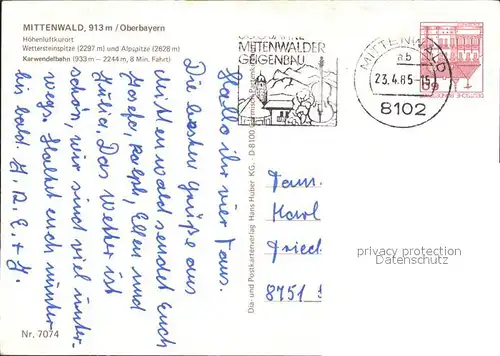 MITTENWALD, 913 m / Oberbayern
Höhenluftkurort
Wettersteinspitze (2297 m) und Alpspitze (2628 m)
Karwendelbahn (933 m – 2244 m, 8 Min. Fahrt)
MITTENWALDER
GEIGENBAU
MITTENWALD
ab
23.4.85-15
8102
Hallo ihr vier
Die besten Grüße aus
Mittenwald sendet Euch
Josefa, Ralph, Ellen und
Julia. Das Wetter ist
schön, wir sind viel unter-
wegs. Haltet euch munter
bis bald. J. R. E. + J.
Dia- und Postkartenverlag Hans Huber KG., D-8100
Fam.
Karl
Fried
8751
privacy protection
watermark
Nr. 7074